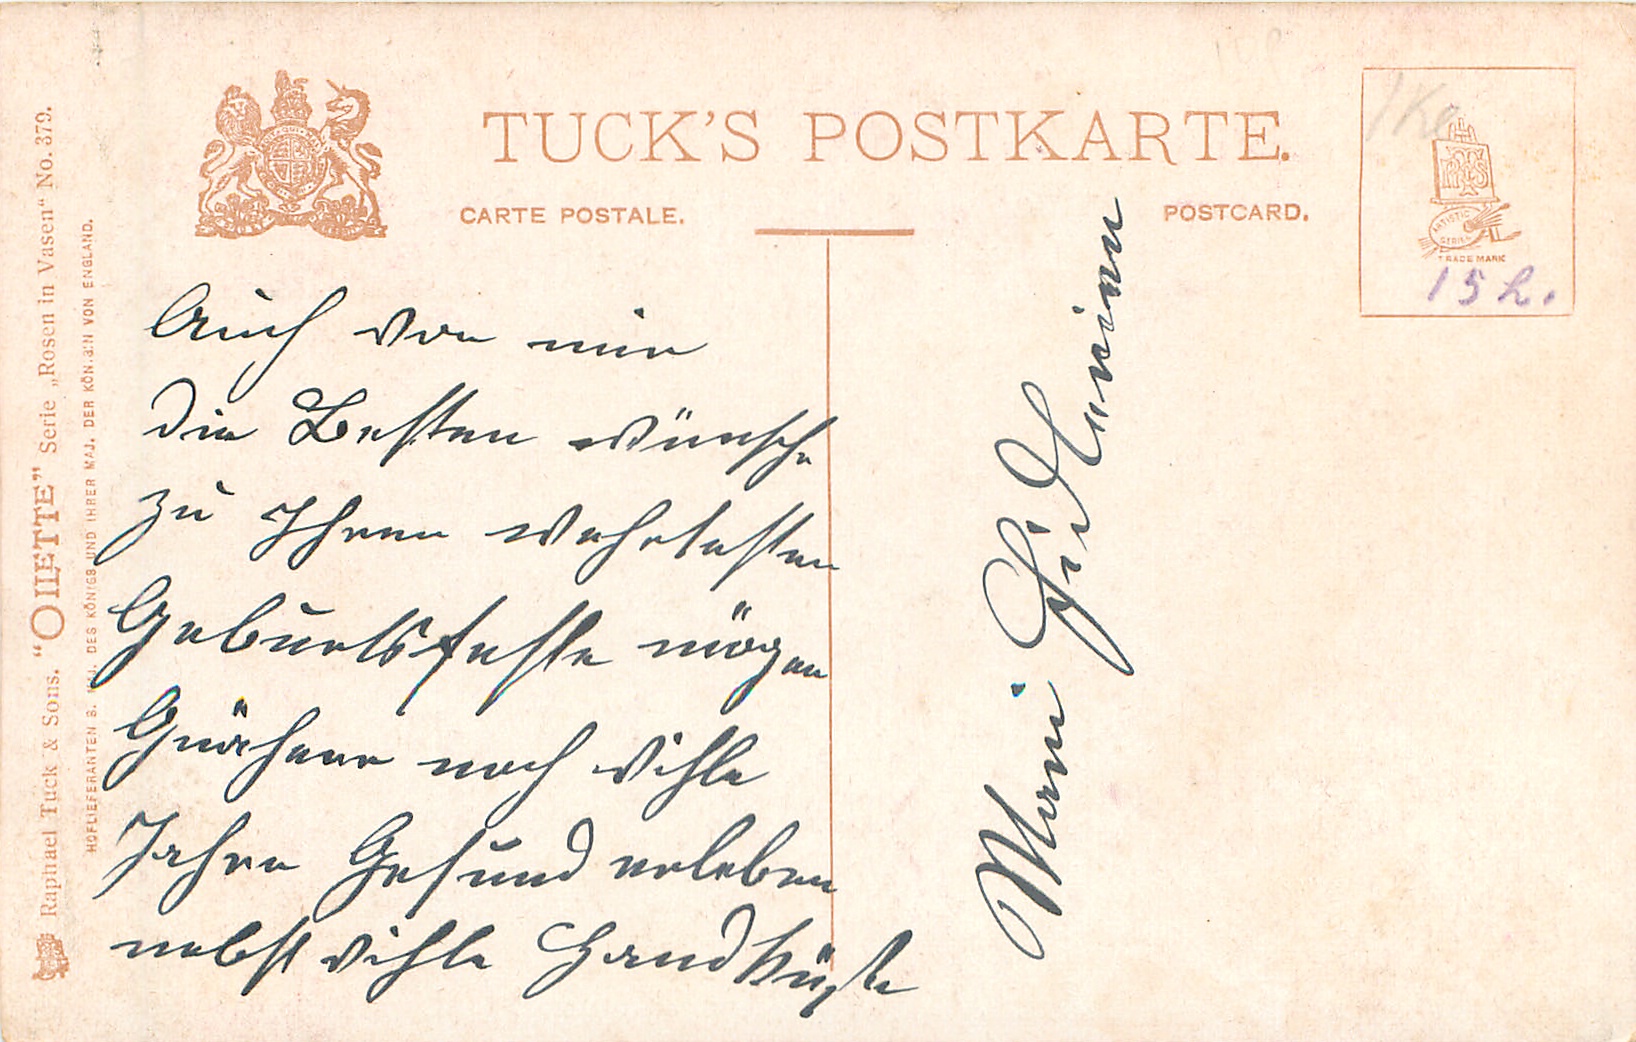 TUCK'S POSTKARTE.
CARTE POSTALE.
POSTCARD.
ARTISTIC
SERIES
TRADE MARK
15 h.
Auch von mir
die Besten Wünsche
zu Ihren Wehrtesten
Geburtsfehste mögen
noch Vihle
Jahre Gesund erleben
nebst vihle Handküße
Mami
Raphael Tuck & Sons. "OILETTE" Serie „Rosen in Vasen“ No. 379.
HOFLIEFERANTEN S. MAJ. DES KÖNIGS UND IHRER MAJ. DER KÖNIGIN VON ENGLAND.